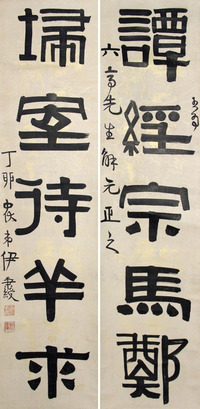 譚經宗馬鄭
六亭先生解元正之
埽室待羊求
丁卯愚弟伊秉綬